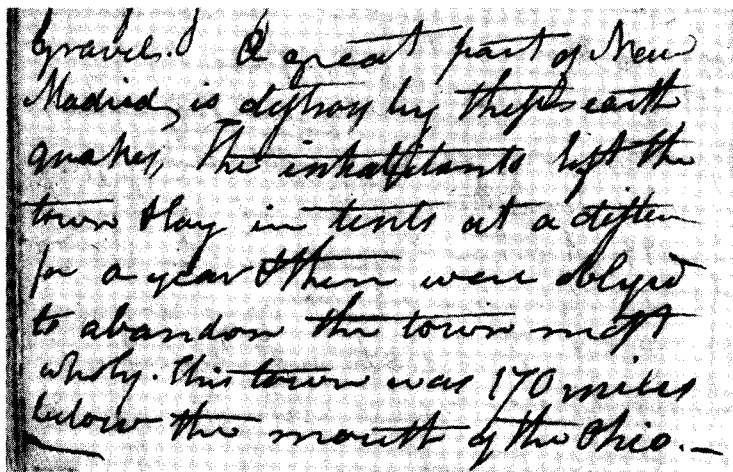 gravel. A great part of New
Madrid, is destroy by these earth
quakes, The inhabitants left the
town & lay in tents at a disten
for a year & then were oblyed
to abandon the town most
wholy. This town was 170 miles
below the mouth of the Ohio.—